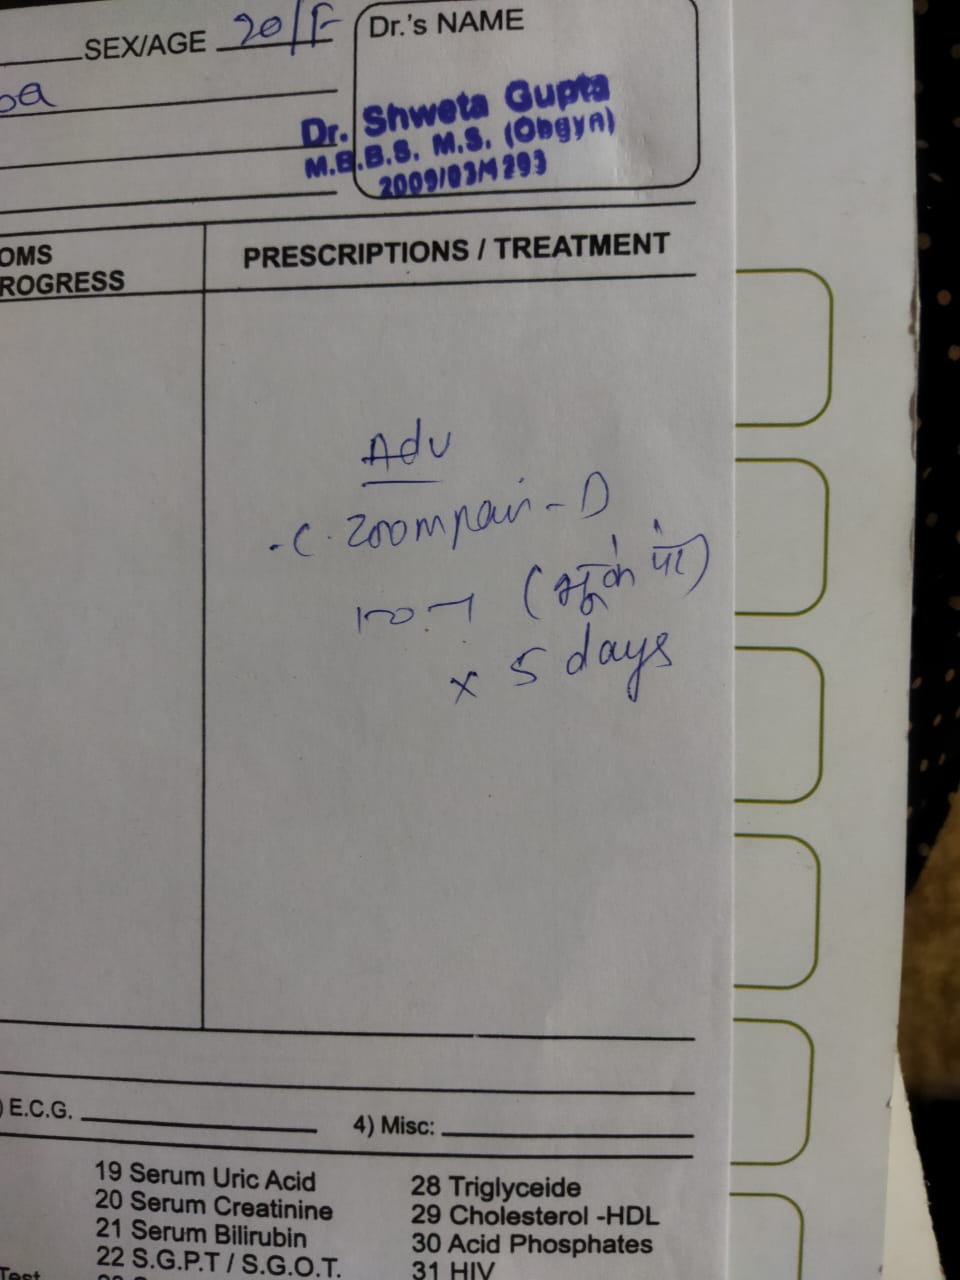 SEX/AGE 20/F
Dr.'s NAME
Dr. Shweta Gupta
M.B.B.S. M.S. (Obgyn)
2009/03/1293
OMS
ROGRESS
PRESCRIPTIONS / TREATMENT
Adv
(भूखे पेट)
x 5 days
) E.C.G.
4) Misc:
19 Serum Uric Acid
20 Serum Creatinine
21 Serum Bilirubin
22 S.G.P.T / S.G.O.T.
28 Triglyceide
29 Cholesterol -HDL
30 Acid Phosphates
31 HIV
Test